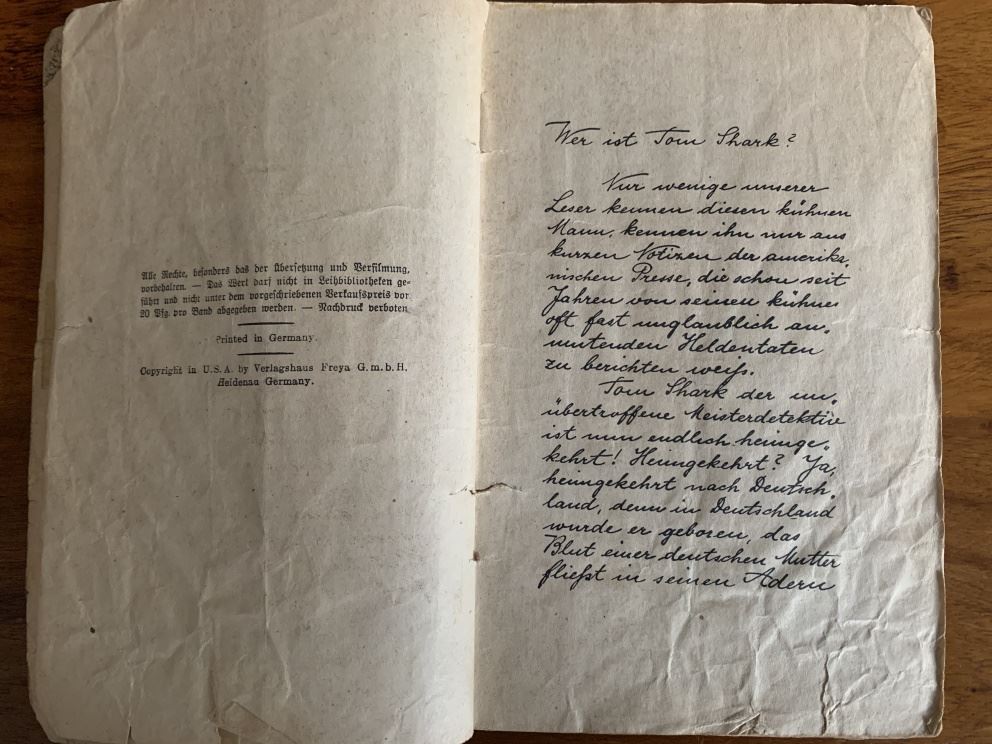 Alle Rechte, besonders das der Übersetzung und Verfilmung,
vorbehalten. — Das Werk darf nicht in Leihbibliotheken ge-
führt und nicht unter dem vorgeschriebenen Verkaufspreis vor
20 Pfg. pro Band abgegeben werden. — Nachdruck verboten
Printed in Germany.
Copyright in U.S.A. by Verlagshaus Freya G.m.b.H.
Heidenau Germany.
Wer ist Tom Shark?
Nur wenige unserer
Leser kennen diesen kühnen
Mann, kennen ihn nur aus
kurzen Notizen der amerika-
nischen Presse, die schon seit
Jahren von seinen kühnen
oft fast unglaublich an-
mutenden Heldentaten
zu berichten weiß.
Tom Shark der un-
übertroffene Meisterdetektiv
ist nun endlich heimge-
kehrt! Heimgekehrt? Ja,
heimgekehrt nach Deutsch-
land, denn in Deutschland
wurde er geboren, das
Blut einer deutschen Mutter
fließt in seinen Adern